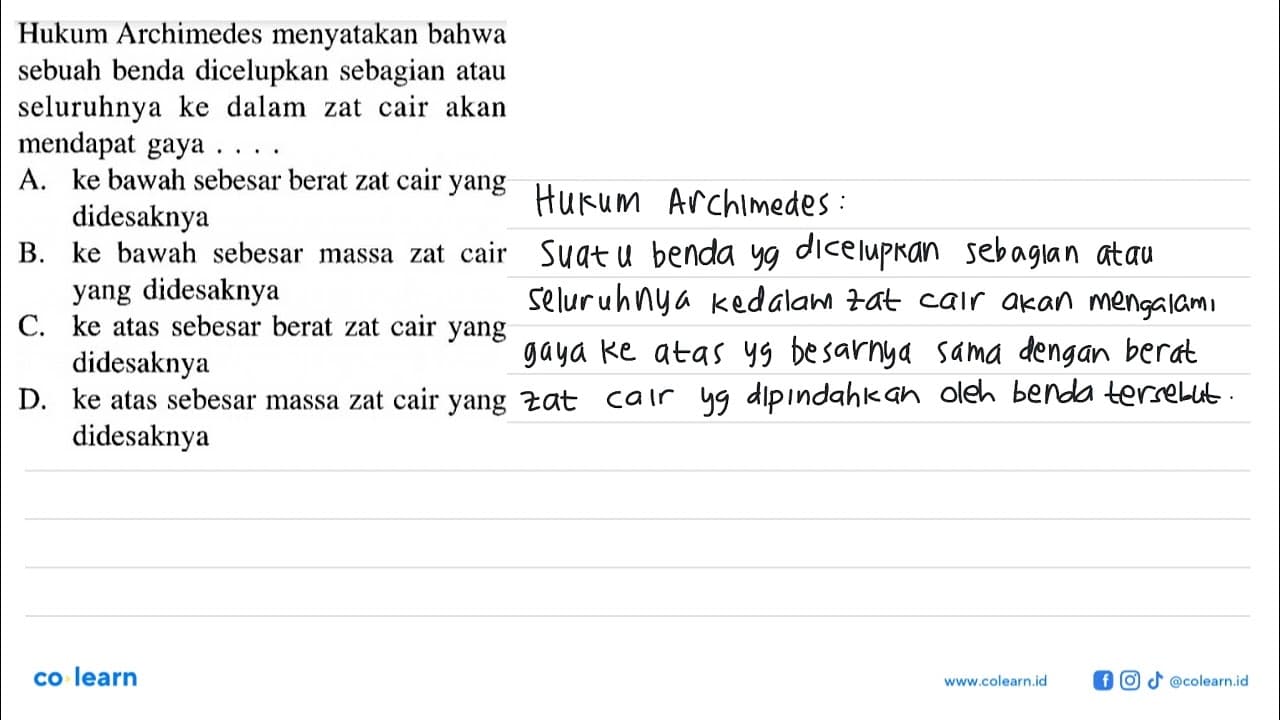 Hukum Archimedes menyatakan bahwa
sebuah benda dicelupkan sebagian atau
seluruhnya ke dalam zat cair akan
mendapat gaya . . . .
A. ke bawah sebesar berat zat cair yang
didesaknya
B. ke bawah sebesar massa zat cair
yang didesaknya
C. ke atas sebesar berat zat cair yang
didesaknya
D. ke atas sebesar massa zat cair yang
didesaknya
Hukum Archimedes :
Suatu benda yg dicelupkan sebagian atau
seluruhnya kedalam zat cair akan mengalami
gaya ke atas yg besarnya sama dengan berat
zat cair yg dipindahkan oleh benda tersebut.
co learn
www.colearn.id
@colearn.id